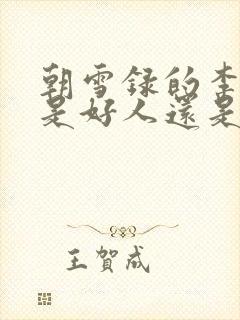 朝雪録的李
是好人還是
王賀成